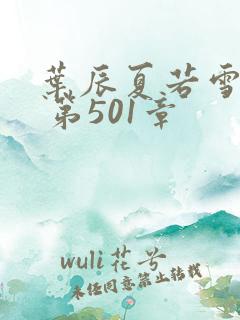 葉辰夏若雪
第501章
wuli花兮
未经同意禁止转载